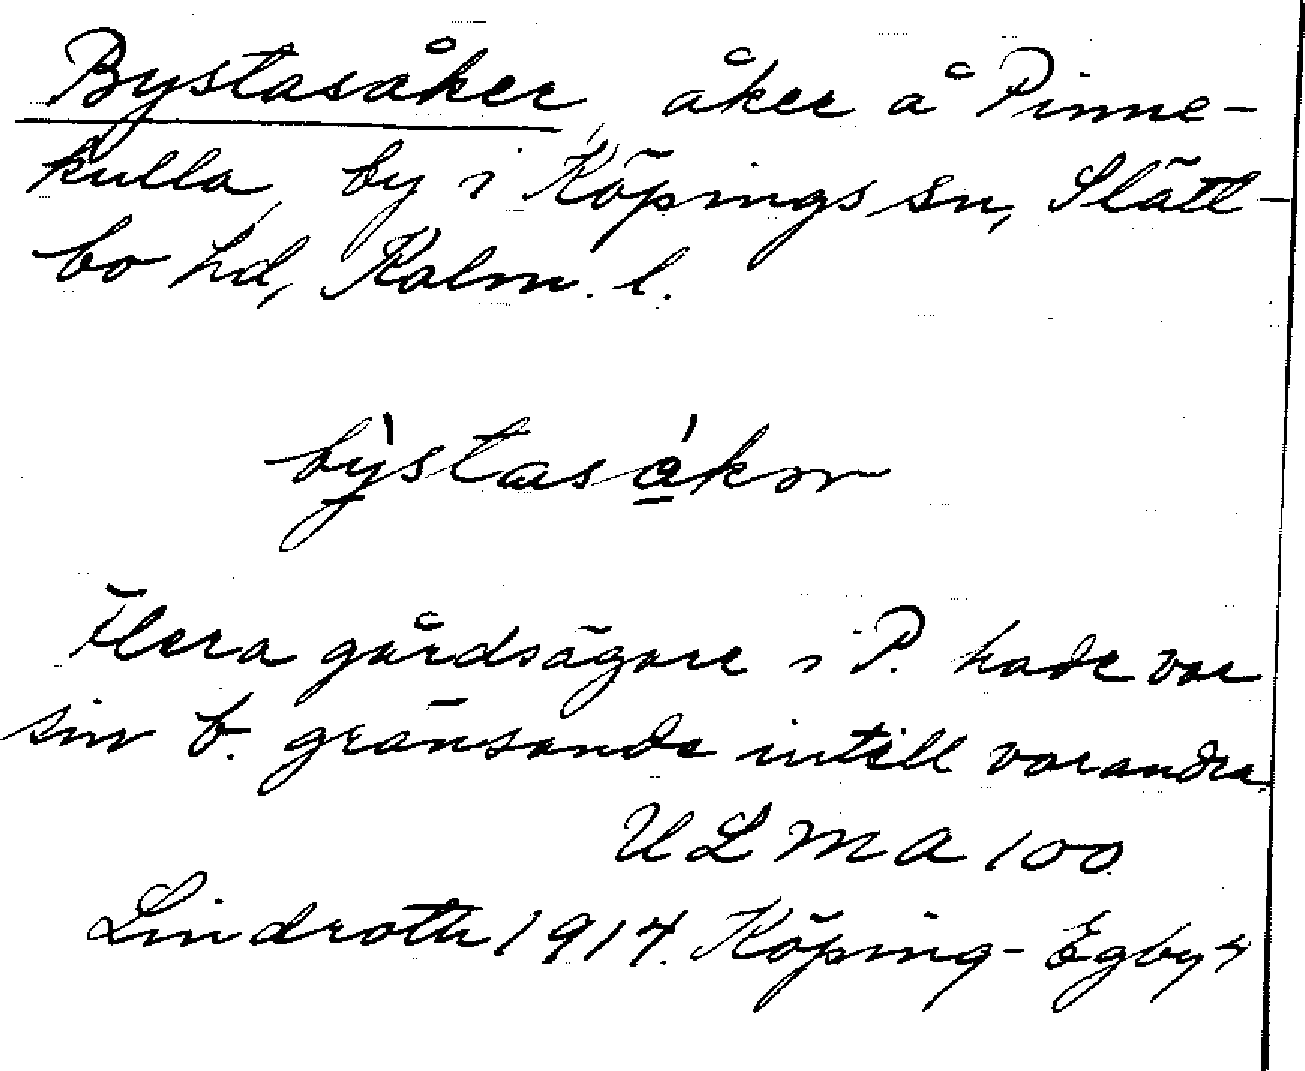 Bystasåker, åker å Pinne-
kulla, by i Köpings sn, Slätt-
bo hd, Kalm. l.
by̍stasa̍kər
Flera gårdsägare i P. hade var
sin b. gränsande intill varandra
ULMA 100
Lindroth 1914. Köping-Egby 4